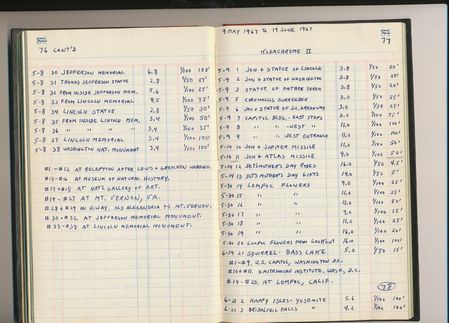 76 CONT'D
5-8 30 JEFFERSON MEMORIAL 6.8 1/100 100'
5-8 31 THOMAS JEFFERSON STATUE 2.8 1/50 25'
5-8 32 FROM INSIDE JEFFERSON MEM. 5.6 1/100 25'
5-8 33 FROM LINCOLN MEMORIAL 9.5 1/100 75'
5-8 34 LINCOLN STATUE 2.8 1/50 30'
5-8 35 FROM INSIDE LINCOLN MEM. 3.4 1/100 50'
5-8 36 " " " " 3.4 1/100 35'
5-8 37 LINCOLN MEMORIAL 3.4 1/100 100'
5-8 38 WASHINGTON NAT. MONUMENT 3.4 1/100 100'
#1-#12 AT RECEPTION AFTER LEWIS & GRETCHEN WEDDING.
#13-#16 AT MUSEUM OF NATURAL HISTORY,
#17+#18 AT NAT'L GALLERY OF ART.
#19-#27 AT MT. VERNON, VA.
#28+#29 ON HIWAY, OLD ALEXANDRIA TO MT. VERNON.
#30-#32 AT JEFFERSON MEMORIAL MONUMENT.
#33-#38 AT LINCOLN MEMORIAL MONUMENT.
9 MAY 1967 TO 19 JUNE 1967
77
KODACHROME II
5-9 1 JON & STATUE OF LINCOLN 3.8 1/50 20'
5-9 2 JON & STATUE OF WASHINGTON 3.8 1/50 20'
5-9 3 STATUE OF FATHER SERRA 3.8 1/50 20'
5-9 5 CORNWALLIS SURRENDER 3.0 1/50 25'
5-9 6 JON & STATUE OF J.C. GREENWAY 3.0 1/50 25'
5-9 7 CAPITOL BLDG.-EAST STEPS 3.0 1/100 75'
5-9 8 " " -WEST " 11.0 1/100 100'
5-9 9 " " WEST ENTRANCE 11.0 1/100 100'
5-9 10 JON & JUPITER MISSILE 11.0 1/100 50'
5-9 11 JON & ATLAS MISSILE 9.0 1/100 20'
5-14 12 DOT: MOTHER'S DAY ROSES 16.0 1/50 4.5'
5-14 13 DOT: MOTHER'S DAY GIFTS 19.0 1/50 5'
5-30 14 LOMPOC FLOWERS 9.0 1/100 25'
5-30 15 " " 11.0 1/100 25'
5-30 16 " " 11.0 1/100 25'
5-30 17 " " 9.0 1/100 25'
5-30 18 " " 11.0 1/100 25'
5-30 19 " " 16.0 1/100 25'
5-30 20 LOMPOC FLOWERS FROM LOOKOUT 16.0 1/100 100'
6-19 21 SQUIRREL - BASS LAKE 5.0 1/50 15'
#1-#9, U.S. CAPITOL, WASHINGTON D.C.
#10+#11 SMITHSONIAN INSTITUTE, WASH, D.C.
#14-#20, AT LOMPOC, CALIF.
78
6-21 2 HAPPY ISLES-YOSEMITE 5.6 1/100 100'
6-21 3 BRIDALVEIL FALLS " 4.2 1/100 100'